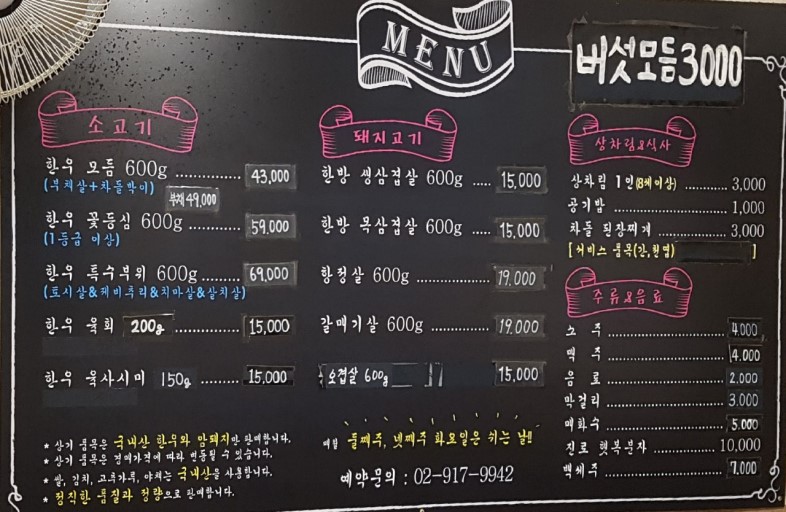 MENU
버섯모듬3000
소고기
한우 모듬 600g .............. 43,000
(부채살+차돌박이)
부채 49,000
한우 꽃등심 600g ............ 59,000
(1등급 이상)
한우 특수부위 600g ........ 69,000
(토시살&제비추리&치마살&살치살)
한우 육회 200g .............. 15,000
한우 육사시미 150g ......... 15,000
* 상기 품목은 국내산 한우와 암퇘지만 판매합니다.
* 상기 품목은 경매가격에 따라 변동될 수 있습니다.
* 쌀, 김치, 고추가루, 야채는 국내산을 사용합니다.
* 정직한 품질과 정량으로 판매합니다.
돼지고기
한방 생삼겹살 600g ..... 15,000
한방 목삼겹살 600g ..... 15,000
항정살 600g .............. 19,000
갈매기살 600g ............ 19,000
오겹살 600g 15,000
매월 둘째주, 넷째주 화요일은 쉬는 날!!
예약문의 : 02-917-9942
상차림&식사
상차림 1인(8세이상) ........... 3,000
공기밥 ........................ 1,000
차돌 된장찌개 ................. 3,000
[서비스 품목(간,천엽) ]
주류&음료
소 주 ........................ 4,000
맥 주 ........................ 4,000
음 료 ........................ 2,000
막걸리 ........................ 3,000
매화수 ........................ 5,000
진로 햇복분자 ............... 10,000
백세주 ........................ 7,000